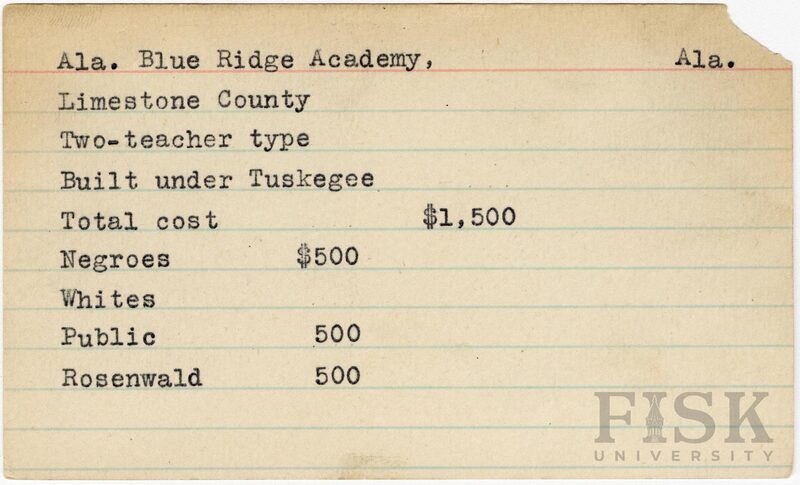 Ala. Blue Ridge Academy, Ala.
Limestone County
Two-teacher type
Built under Tuskegee
Total cost $1,500
Negroes $500
Whites
Public 500
Rosenwald 500
FISK
UNIVERSITY